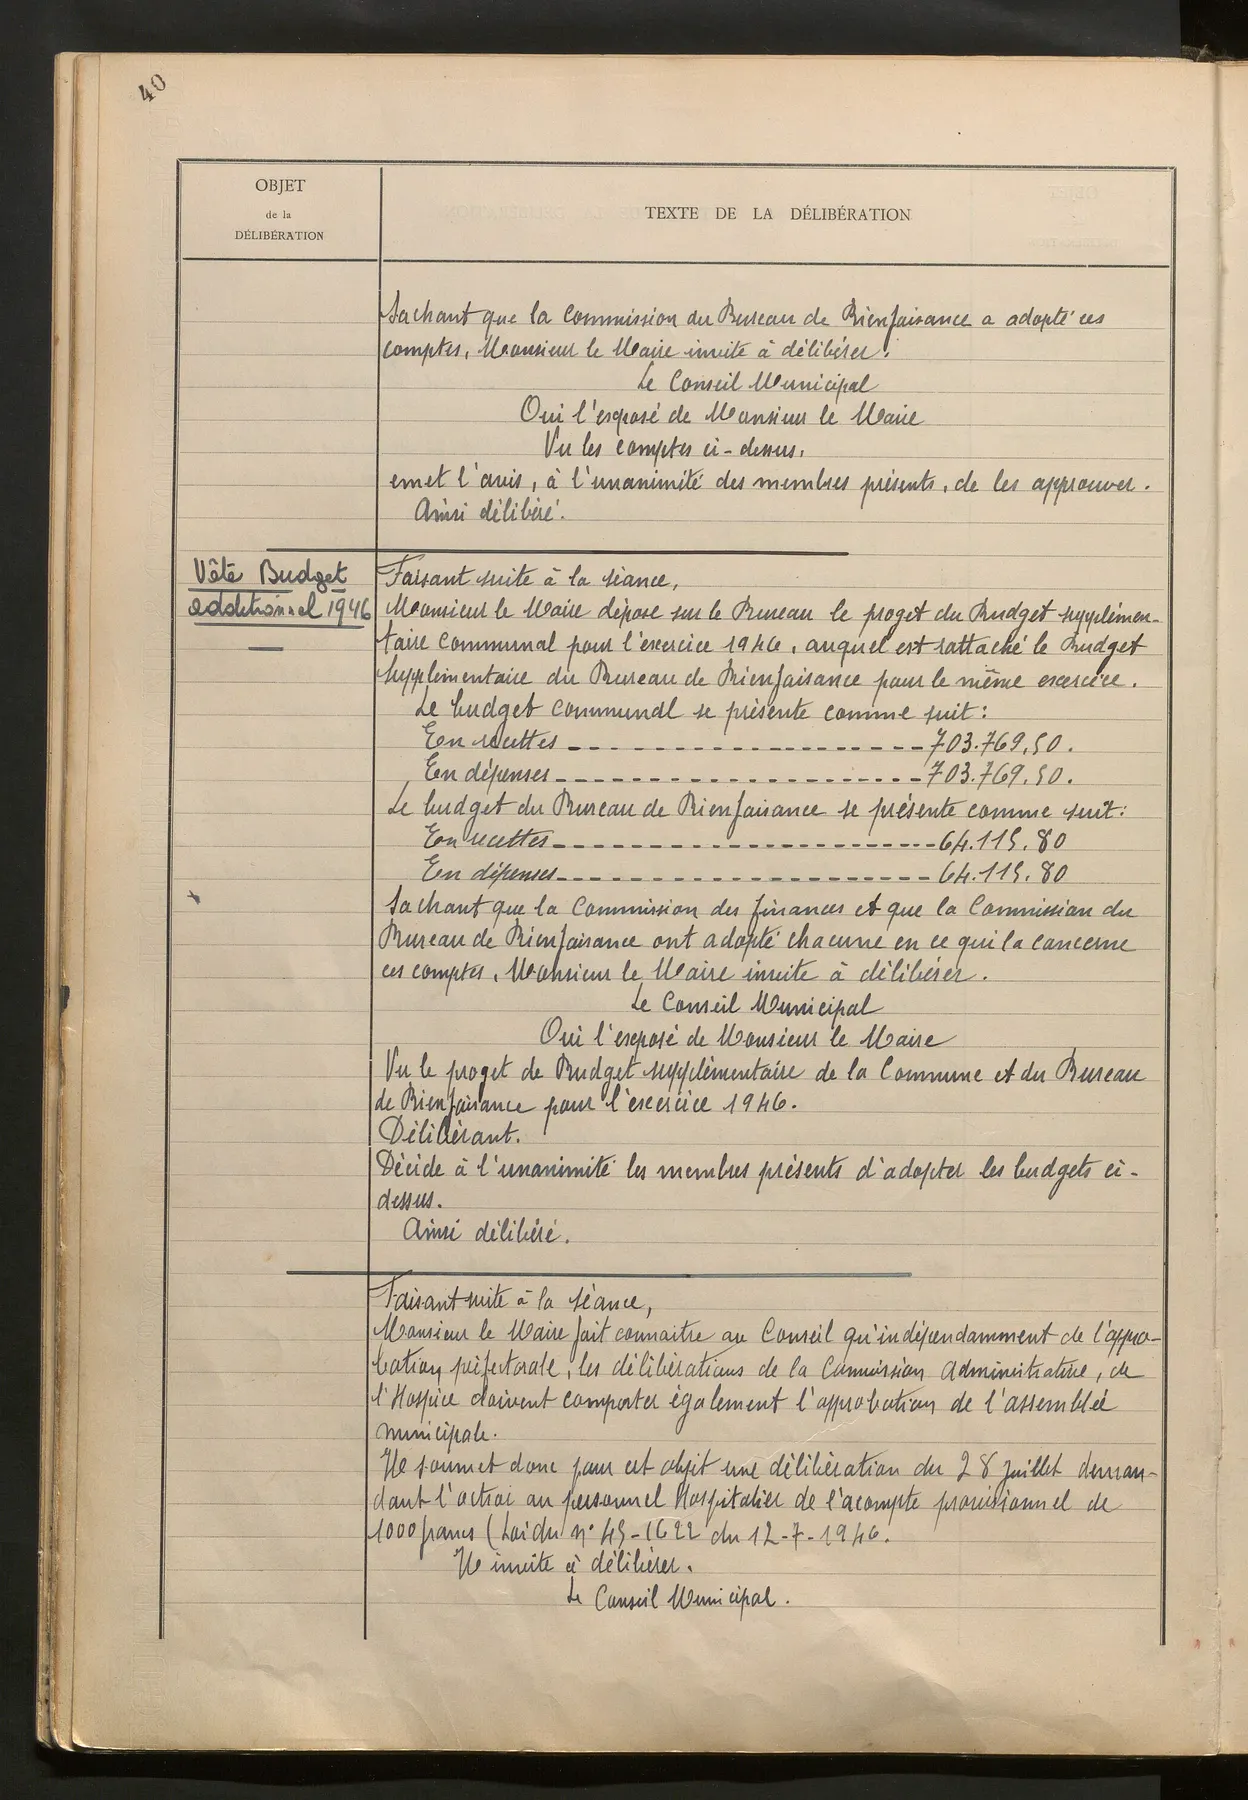 40
OBJET
de la
DÉLIBÉRATION
TEXTE DE LA DÉLIBÉRATION
Sachant que la Commission du Bureau de Bienfaisance a adopté ces
comptes, Monsieur le Maire invite à délibérer.
Le Conseil Municipal
Oui l'exposé de Monsieur le Maire
Vu les comptes ci-dessus,
emet l'avis, à l'unanimité des membres présents, de les approuver.
Ainsi délibéré.
Vôte Budget
additionnel 1946
Faisant suite à la séance,
Monsieur le Maire dépose sur le Bureau le projet du Budget supplémen-
taire Communal pour l'exercice 1946, auquel est rattaché le Budget
supplémentaire du Bureau de Bienfaisance pour le même exercice.
Le budget communal se présente comme suit:
En recettes - - - - - - - - - - - - - - - - - - - - 703.769,50.
En dépenses - - - - - - - - - - - - - - - - - - - - 703.769.50.
Le budget du Bureau de Bienfaisance se présente comme suit:
En recettes - - - - - - - - - - - - - - - - - - - - 64.115.80
En dépenses - - - - - - - - - - - - - - - - - - - - 64.115.80
Sachant que la Commission des finances et que la Commission du
Bureau de Bienfaisance ont adopté chacune en ce qui la concerne
ces comptes, Monsieur le Maire invite à délibérer.
Le Conseil Municipal
Oui l'exposé de Monsieur le Maire
Vu le projet de Budget supplémentaire de la Commune et du Bureau
de Bienfaisance pour l'exercice 1946.
Délibérant.
Décide à l'unanimité les membres présents d'adopter les budgets ci-
dessus.
Ainsi délibéré.
Faisant suite à la séance,
Monsieur le Maire fait connaitre au Conseil qu'indépendamment de l'appro-
bation préfectorale, les délibérations de la Commission Administrative, de
l'Hospice doivent comporter également l'approbation de l'assemblée
municipale.
Il soumet donc pour cet objet une délibération du 28 Juillet deman-
dant l'octroi au personnel Hospitalier de l'acompte provisionnel de
1000 francs (Loi du n° 45-1622 du 12-7-1946.
Il invite à délibérer.
Le Conseil Municipal.